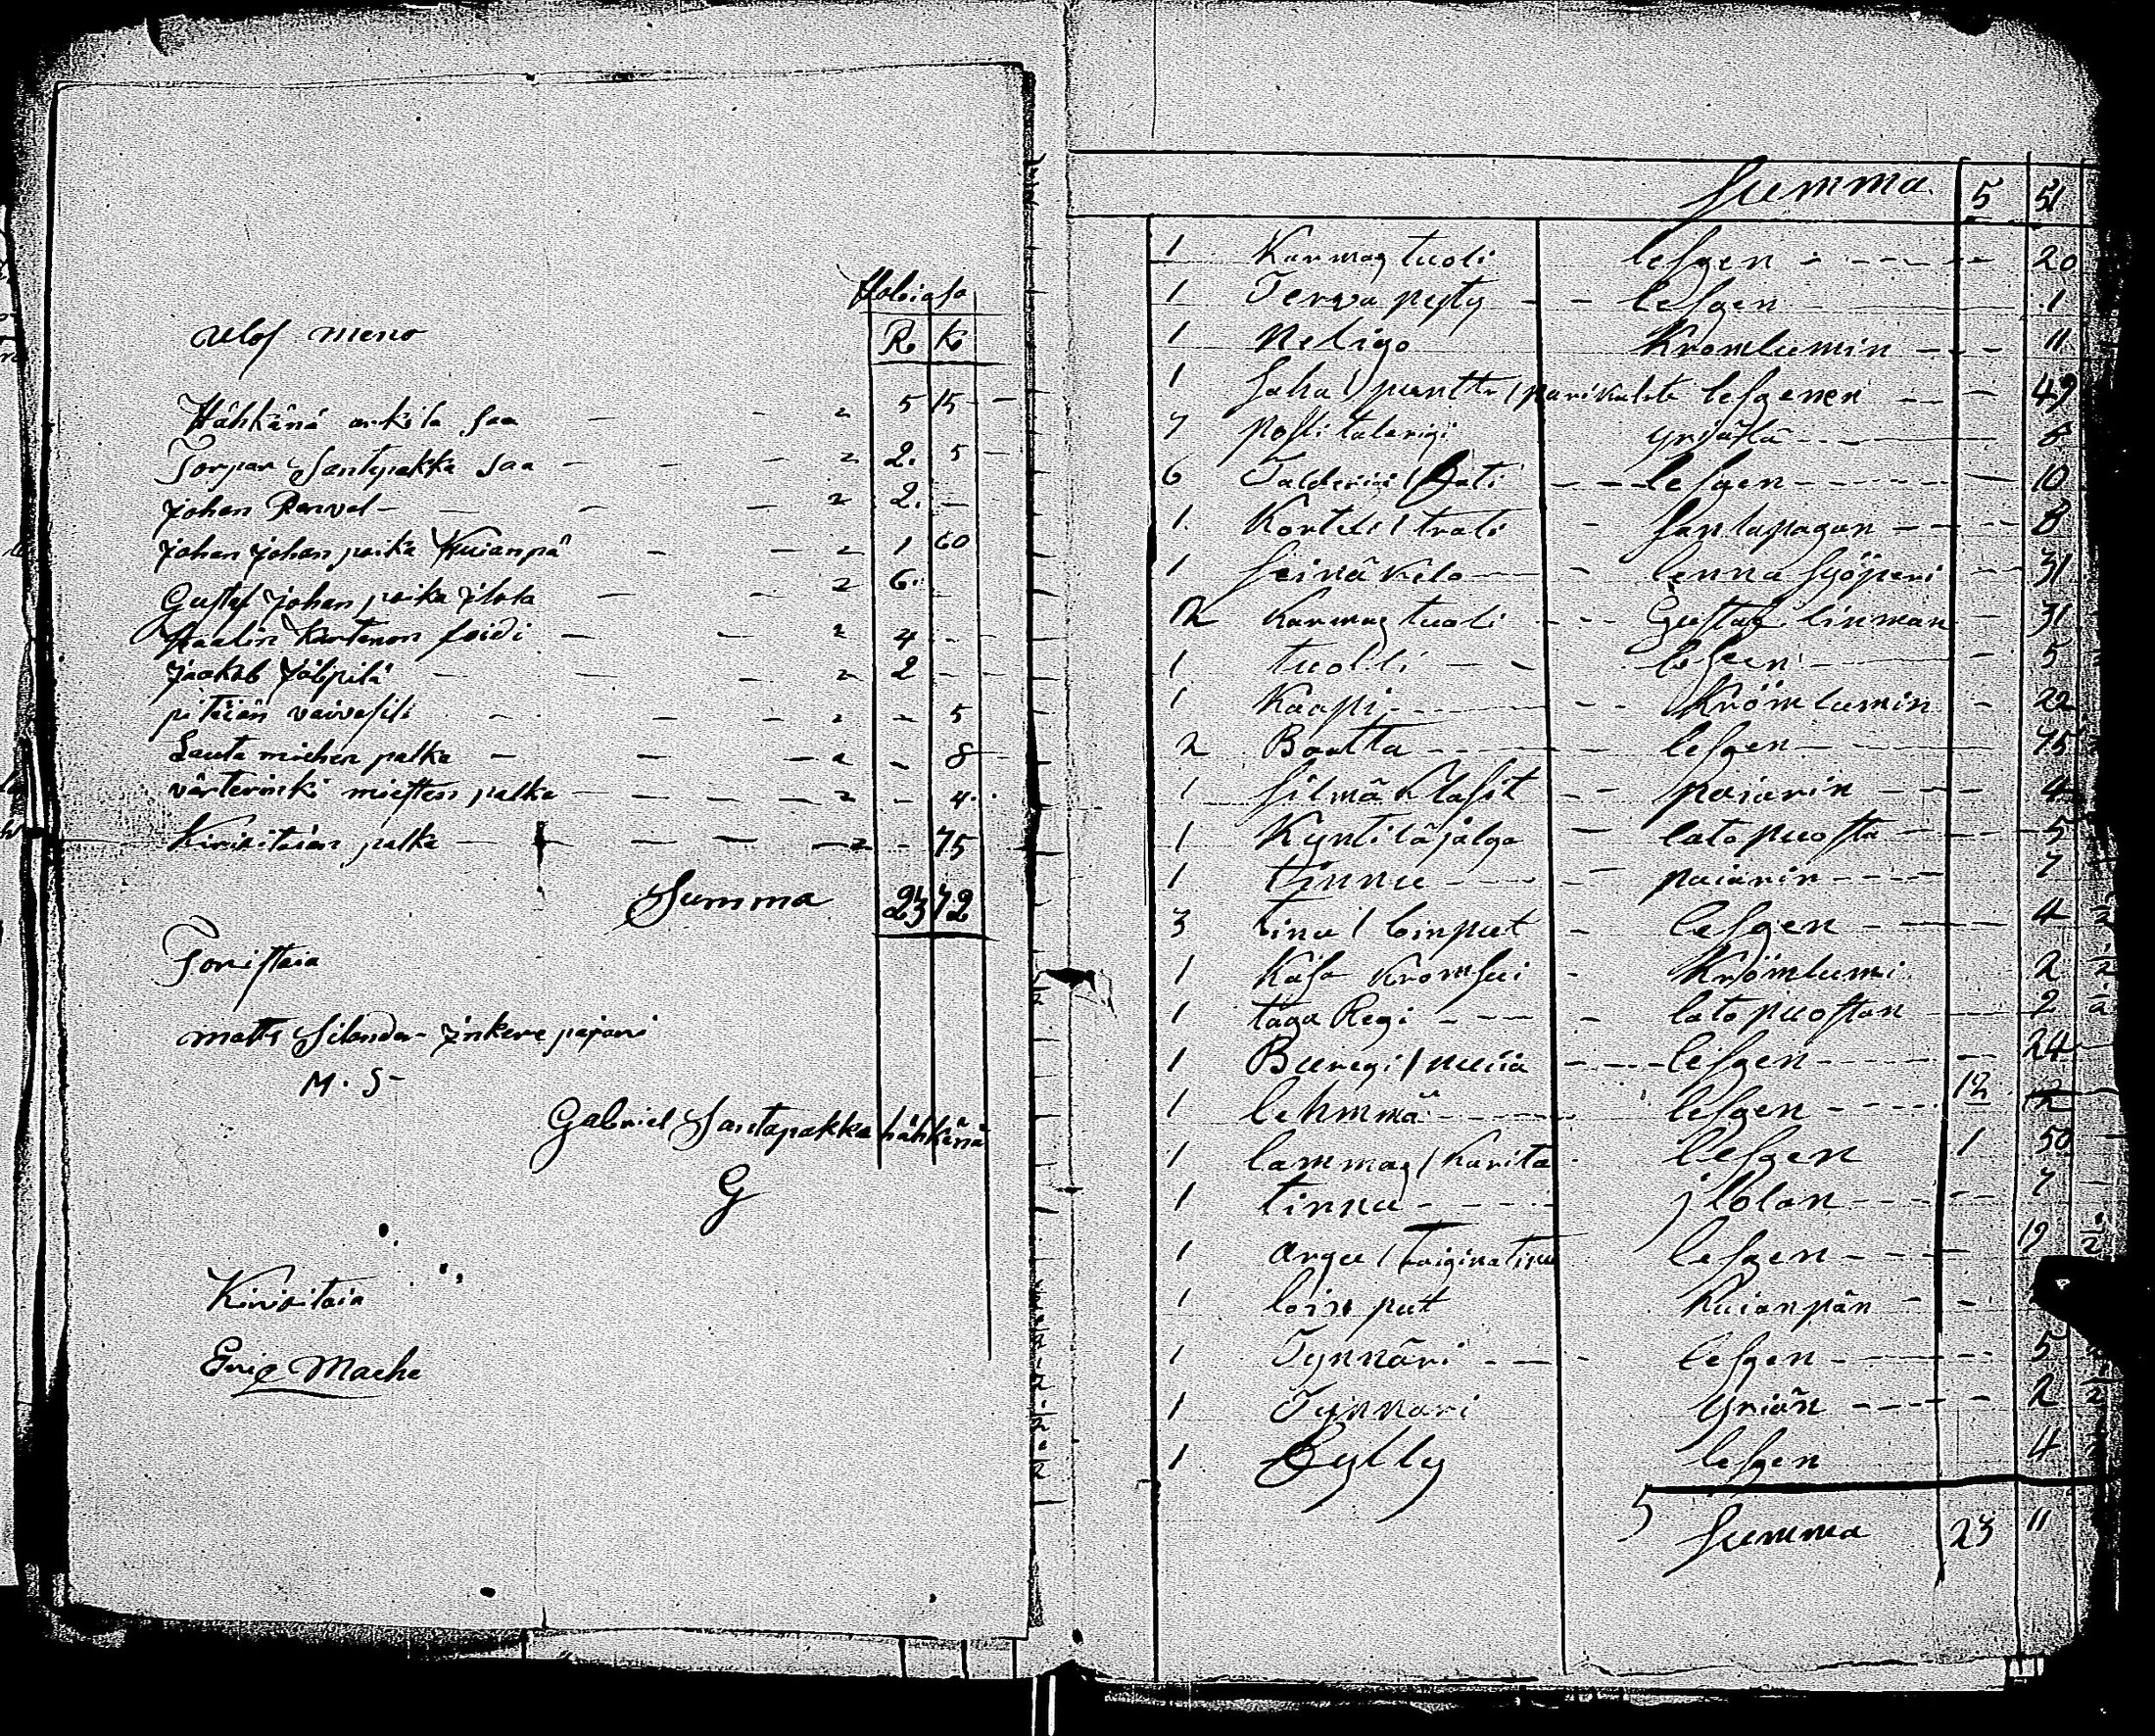 Hobiasa
Ulos meno R K
Hähkänä arkila saa — — 2 5 15
Torpar Santapakka Saa — — — 2 2. 5
Johan Renvel — — — — 2 2. —
Johan Johan poika Kuianpä — — 2 1 60
Gustaf Johan poika jlola — — 2 6.
Kartanon — — 2 4 -
Jaakob — — — 2 2 - -
pitäiän vaivasile — — - 2 - 5
Lauta miehen palka — — — 2 - 8
värterinki miesten palka — — — — 2 - 4.
Kirioitaian palka — — — — 2 - 75
Summa 23 72
Toristaia
Matts Silander Jnkere pajari
M. S
Gabriel Santapakka hähkänä
G
Kirioitaia
Eric Mache
Summa 5 51
1 Karmag tuoli lesgen 20
1 Terva pytty lesgen 1
1 Neligo Kromlumin 11
1 Saha lesgenen 49
7 Posli talerigi yriätä 8
6 Talderigi / lesgen 10
1. Kortteli trati Santapagan 8
1 Seinä kelo lenna Sjöperi 31
2 Karmag tuoli Gustaf linman 31
1 tuolli lesgen 5
1 Kaapi Krömlumin 22
2 Boutta lesgen 75
1 Silmä klasit paiarin 4
1 Kyntiläjalga latopuosta 5
1 tinnu paiarin 7
3 tinu / loinput lesgen 4 2
1 Käsa Kromsui Krömlumi 2 2
1 taga Regi latopuostan 2 2
1 Buuregi / muiia lesgen 24
1 lehmmä lesgen 12
1 lammag / karita lesgen 1 50
1 tinnu jlolan 7
1 argu / lesgen 19 2
1 loinput Kuianpän
1 Tynnäri lesgen 5
1 Tynnäri yriän 2 2
1 Bylly lesgen 4
5 Summa 23 11